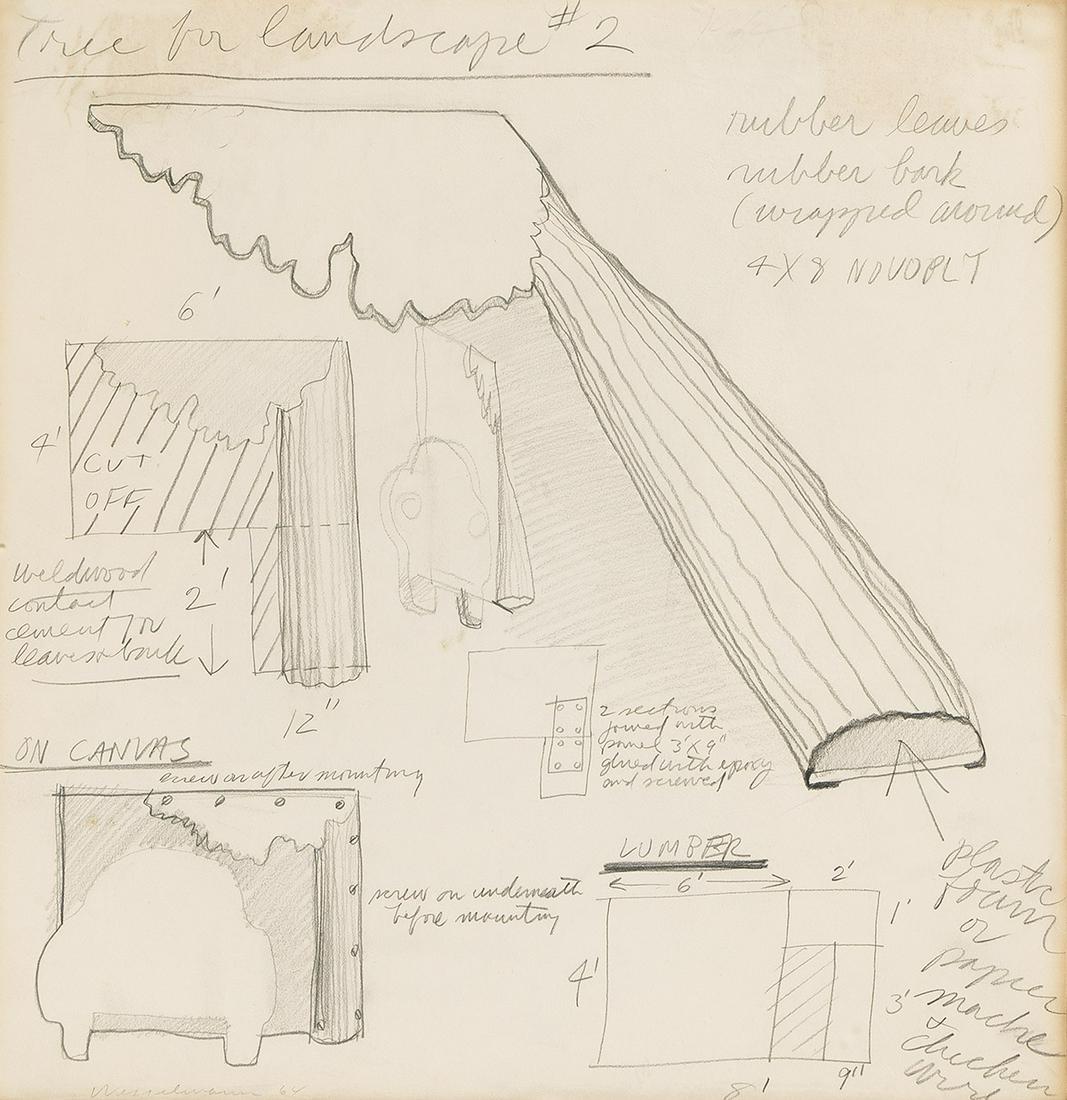 Tree for landscape #2
rubber leaves
rubber bark
(wrapped around)
4X8 NOVOPLT
6'
4'
CUT
OFF
weldwood
contact
cement for
leaves + bark
2'
12"
2 sections
joined with
panel 3'X9"
glued with epoxy
and screwed
ON CANVAS
screw on after mounting
screw on underneath
before mounting
LUMBER
6'
2'
1'
4'
3'
8'
9"
plastic
foam
or
papier
mache
+
chicken
wire
Wesselmann 65